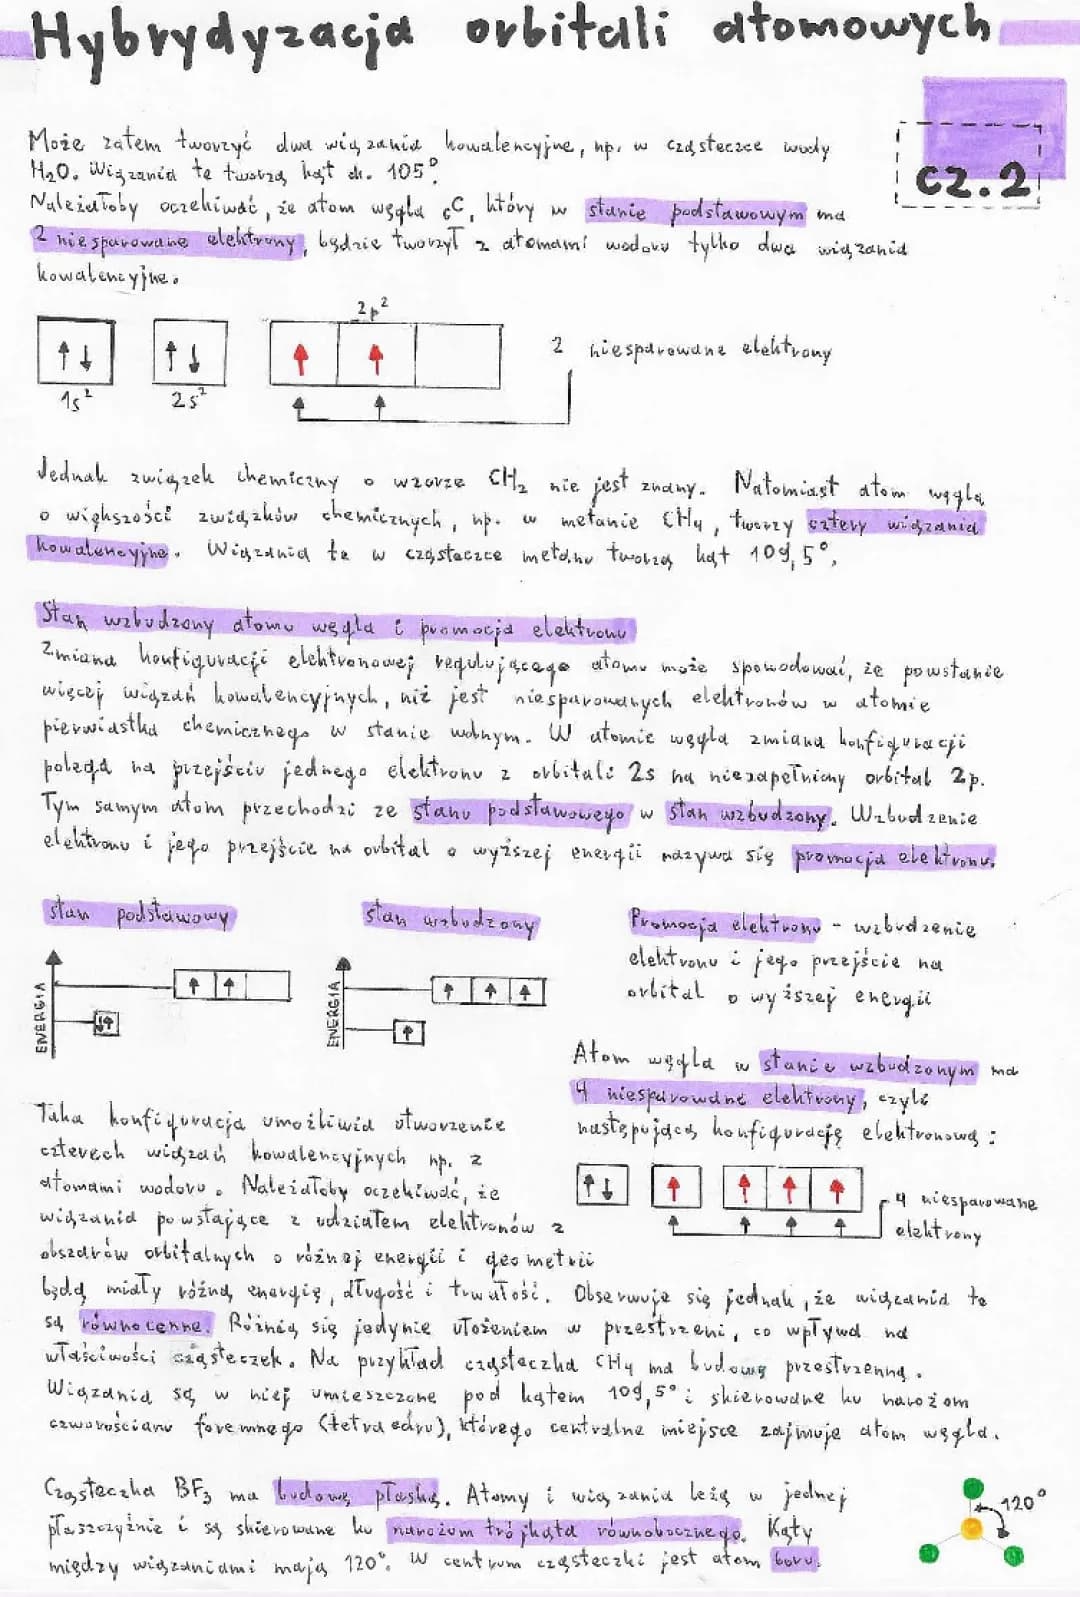 Hybrydyzacja orbitali atomowych
cz.2
Może zatem tworzyć dwa wiązania kowalencyjne, np. w cząsteczce wody
H₂O. Wiązania te tworzą kąt ok. 105°.
Należałoby oczekiwać, że atom węgla ₆C, który w stanie podstawowym ma
2 niesparowane elektrony, będzie tworzył z atomami wodoru tylko dwa wiązania
kowalencyjne.
2p²
1s² 2s²
2 niesparowane elektrony
Jednak związek chemiczny o wzorze CH₂ nie jest znany. Natomiast atom węgla
o większości związków chemicznych, np. w metanie CH₄, tworzy cztery wiązania
kowalencyjne. Wiązania te w cząsteczce metanu tworzą kąt 109,5°.
Stan wzbudzony atomu węgla i promocja elektronu
Zmiana konfiguracji elektronowej regulującego atomu może spowodować, że powstanie
więcej wiązań kowalencyjnych, niż jest niesparowanych elektronów w atomie
pierwiastka chemicznego w stanie wolnym. W atomie węgla zmiana konfiguracji
polega na przejściu jednego elektronu z orbitali 2s na niezapełniony orbital 2p.
Tym samym atom przechodzi ze stanu podstawowego w stan wzbudzony. Wzbudzenie
elektronu i jego przejście na orbital o wyższej energii nazywa się promocją elektronu.
stan podstawowy
ENERGIA
stan wzbudzony
ENERGIA
Promocja elektronu - wzbudzenie
elektronu i jego przejście na
orbital o wyższej energii
Atom węgla w stanie wzbudzonym ma
4 niesparowane elektrony, czyli
następującą konfigurację elektronową:
4 niesparowane
elektrony
Taka konfiguracja umożliwia utworzenie
czterech wiązań kowalencyjnych np. z
atomami wodoru. Należałoby oczekiwać, że
wiązania powstające z udziałem elektronów z
obszarów orbitalnych o różnej energii i geometrii
będą miały różną energię, długość i trwałość. Obserwuje się jednak, że wiązania te
są równocenne. Różnią się jedynie ułożeniem w przestrzeni, co wpływa na
właściwości cząsteczek. Na przykład cząsteczka CH₄ ma budowę przestrzenną.
Wiązania są w niej umieszczone pod kątem 109,5° i skierowane ku narożom
czworościanu foremnego (tetraedru), którego centralne miejsce zajmuje atom węgla.
Cząsteczka BF₃ ma budowę płaską. Atomy i wiązania leżą w jednej
płaszczyźnie i są skierowane ku narożom trójkąta równobocznego. Kąty
między wiązaniami mają 120°. W centrum cząsteczki jest atom boru.
120°